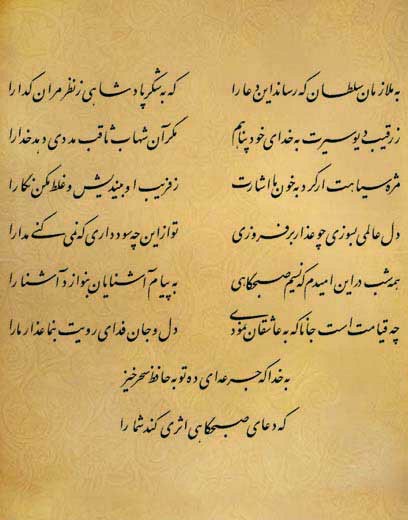 به ملازمان سلطان که رساند این دعا را که به شکر پادشاهی ز نظر مران گدا را
ز رقیب دیو سیرت به خدای خود پناهم مگر آن شهاب ثاقب مددی دهد خدا را
مژه سیاهت ار کرد به خون ما اشارت ز فریب او بیندیش و غلط مکن نگارا
دل عالمی بسوزی چو عذار برفروزی تو از این چه سود داری که نمی کنی مدارا
همه شب در این امیدم که نسیم صبحگاهی به پیام آشنایان بنوازد آشنا را
چه قیامت است جانا که به عاشقان نمودی دل و جان فدای رویت بنما عذار ما را
به خدا که جرعه ای ده تو به حافظ سحرخیز
که دعای صبحگاهی اثری کند شما را